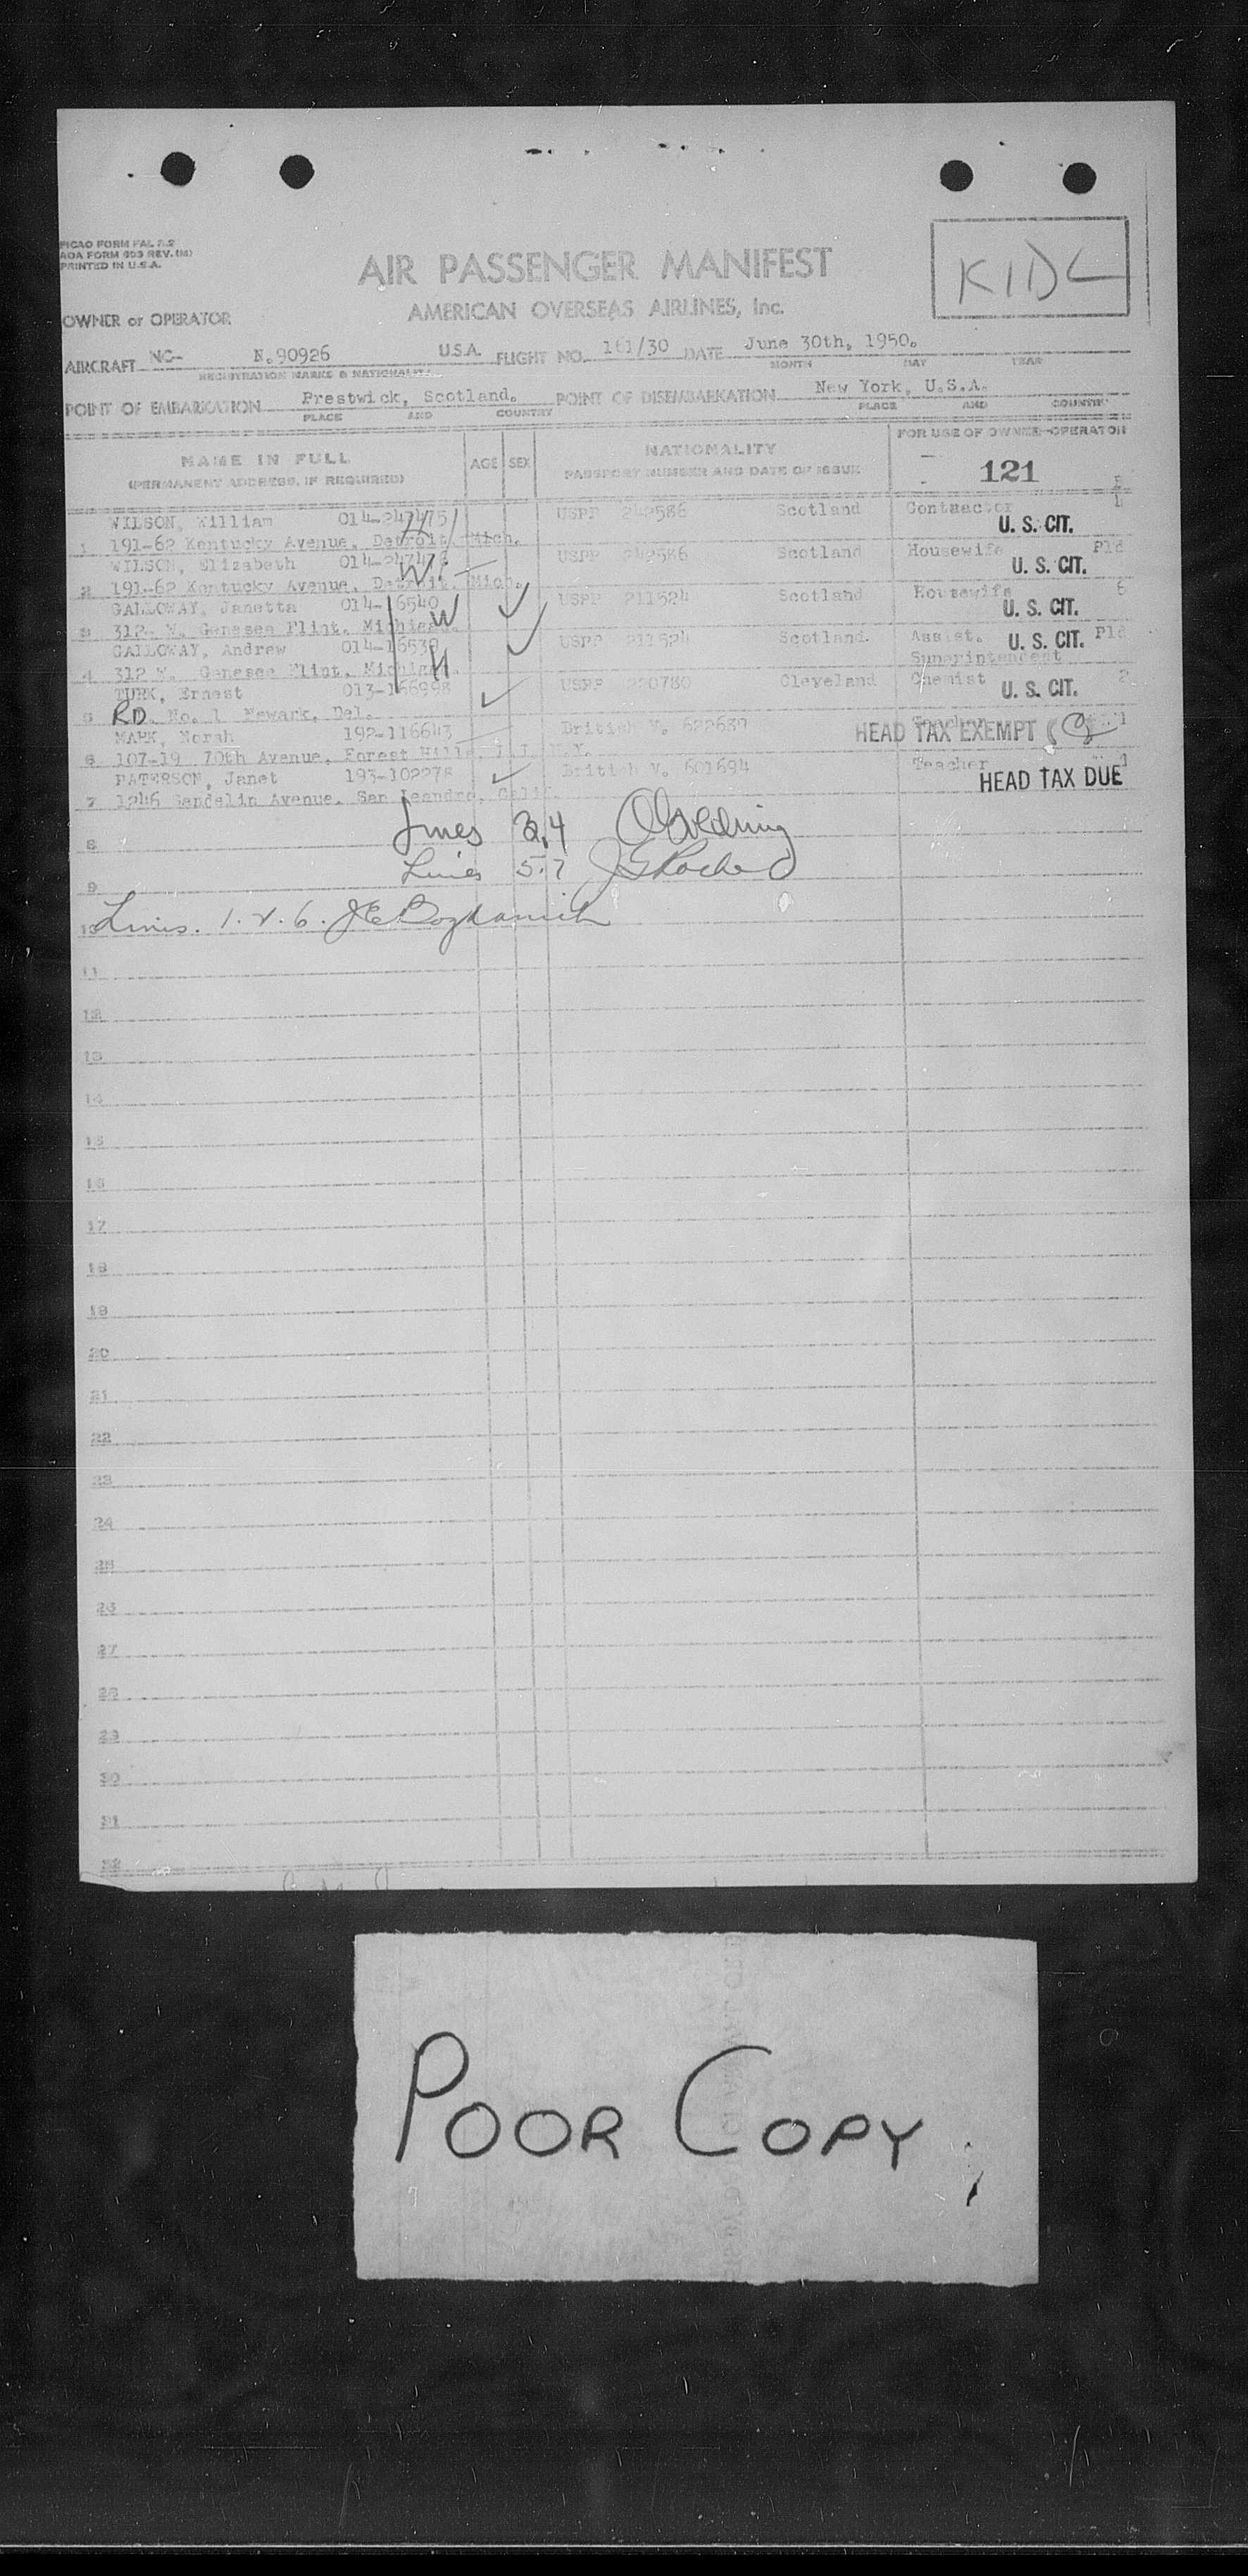 ICAO FORM FAL 2.2
AOA FORM 603 REV. (M)
PRINTED IN U.S.A.
KIDL
AIR PASSENGER MANIFEST
AMERICAN OVERSEAS AIRLINES, Inc.
OWNER or OPERATOR
AIRCRAFT NC- N.90926 U.S.A. FLIGHT NO. 161/30 DATE June 30th, 1950.
REGISTRATION MARKS & NATIONALITY MONTH DAY YEAR
POINT OF EMBARKATION Prestwick, Scotland. POINT OF DISEMBARKATION New York, U.S.A.
PLACE AND COUNTRY PLACE AND COUNTRY
NAME IN FULL AGE SEX NATIONALITY FOR USE OF OWNER-OPERATOR
(PERMANENT ADDRESS, IF REQUIRED) PASSPORT NUMBER AND DATE OF ISSUE 121
WILSON, William 014-247475 H USPP 242586 Scotland Contractor U. S. CIT.
1 191-62 Kentucky Avenue, Detroit, Mich.
WILSON, Elizabeth W USPP 242586 Scotland Housewife U. S. CIT.
2 191-62 Kentucky Avenue, Detroit, Mich.
GALLOWAY, Janetta 014-16540 W USPP 211524 Scotland Housewife U. S. CIT.
3 312- W. Genesee Flint, Michigan.
GALLOWAY, Andrew H USPP 211524 Scotland. Assist. U. S. CIT.
Superintendent
4 312 W. Genesee Flint, Michigan.
TURK, Ernest 013-166998 USPP 220780 Cleveland Chemist U. S. CIT.
5 RD. No. 1 Newark, Del.
MARK, Norah 192-116643 British V. 622689 HEAD TAX EXEMPT
6 107-19 70th Avenue, Forest Hills, L.I. N.Y.
PATERSON, Janet 193-102278 British V. 601694 Teacher HEAD TAX DUE
7 1246 Sandelin Avenue, San Leandro, Calif.
8 Lines 3,4
9 Lines 5.7
10 Lines. 1. 2. 6.
11
12
13
14
15
16
17
18
19
20
21
22
23
24
25
26
27
28
29
30
31
32
POOR COPY